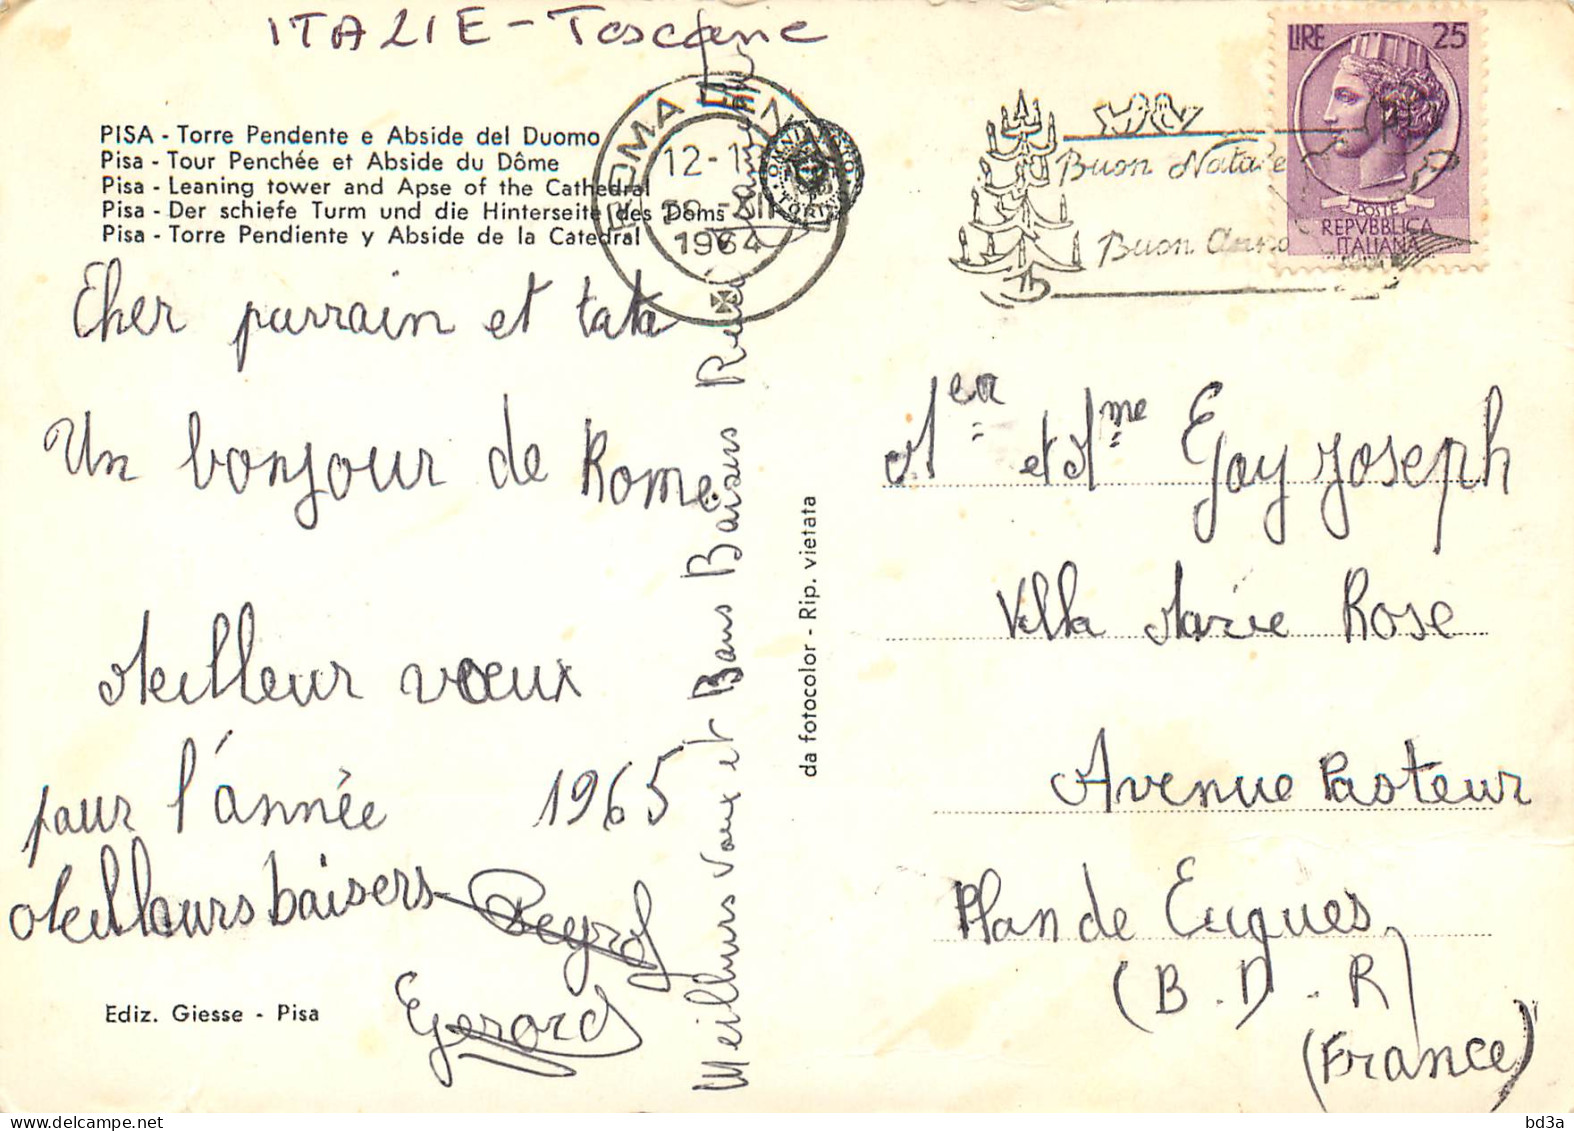 ITALIE - Toscane
PISA - Torre Pendente e Abside del Duomo
Pisa - Tour Penchée et Abside du Dôme
Pisa - Leaning tower and Apse of the Cathedral
Pisa - Der schiefe Turm und die Hinterseite des Doms
Pisa - Torre Pendiente y Abside de la Catedral
ROMA
1964
Buon Natale
Buon Anno
LIRE 25
POSTE
REPVBBLICA
ITALIANA
Cher parrain et tata
Un bonjour de Rome.
Meilleur vœux
pour l'année 1965
Meilleurs baisers
Gerard
Ediz. Giesse - Pisa
Meilleurs Vœux et Bons Baisers
da fotocolor - Rip. vietata
et Mme Gay Joseph
Villa Marie Rose
Avenue Pasteur
Plan de Cuques
(B.D.R)
(France)
bd3a